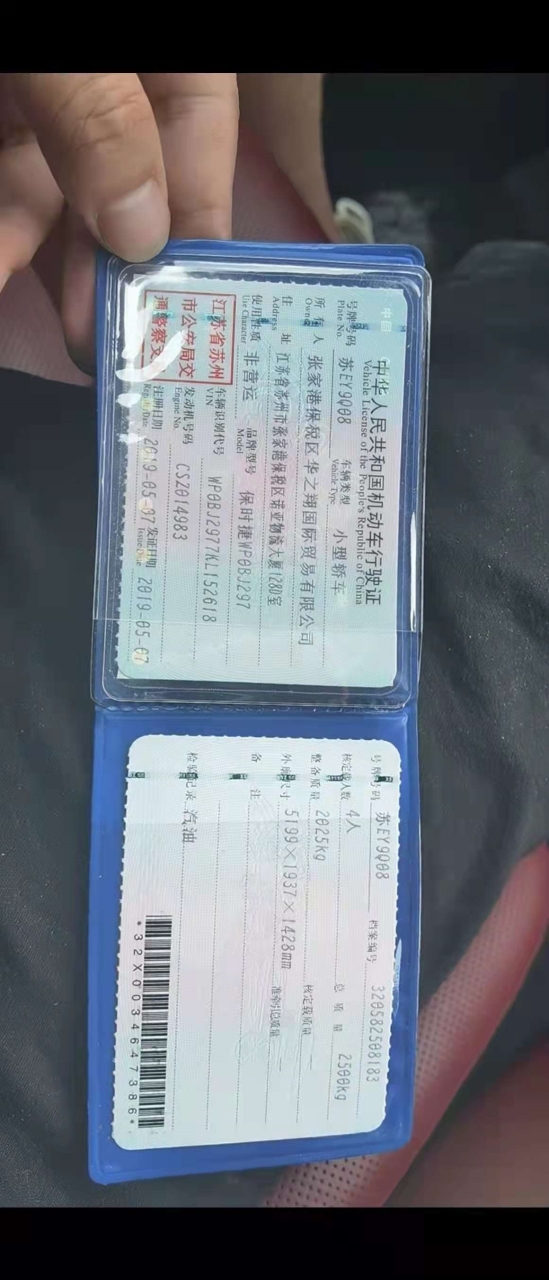 中华人民共和国机动车行驶证
Vehicle License of the People's Republic of China
号牌号码 苏EY9Q08 车辆类型 小型轿车
Plate No. Vehicle Type
所有人 张家港保税区华之翔国际贸易有限公司
Owner
住址 江苏省苏州市张家港保税区诺亚物流大厦1280室
Address
使用性质 非营运 品牌型号 保时捷WP0BJ297
Use Character Model
江苏省苏州
市公安局交
通警察支
车辆识别代号 WP0BJ2977KL152618
VIN
发动机号码 CS2014983
Engine No.
注册日期 2019-05-07 发证日期 2019-05-07
Issue Date
号牌号码 苏EY9Q08 档案编号 320582508183
核定载人数 4人 总质量 2500kg
整备质量 2025kg 核定载质量
外廓尺寸 5199×1937×1428mm 准牵引总质量
备注
检验记录 汽油
*32X0034647386*